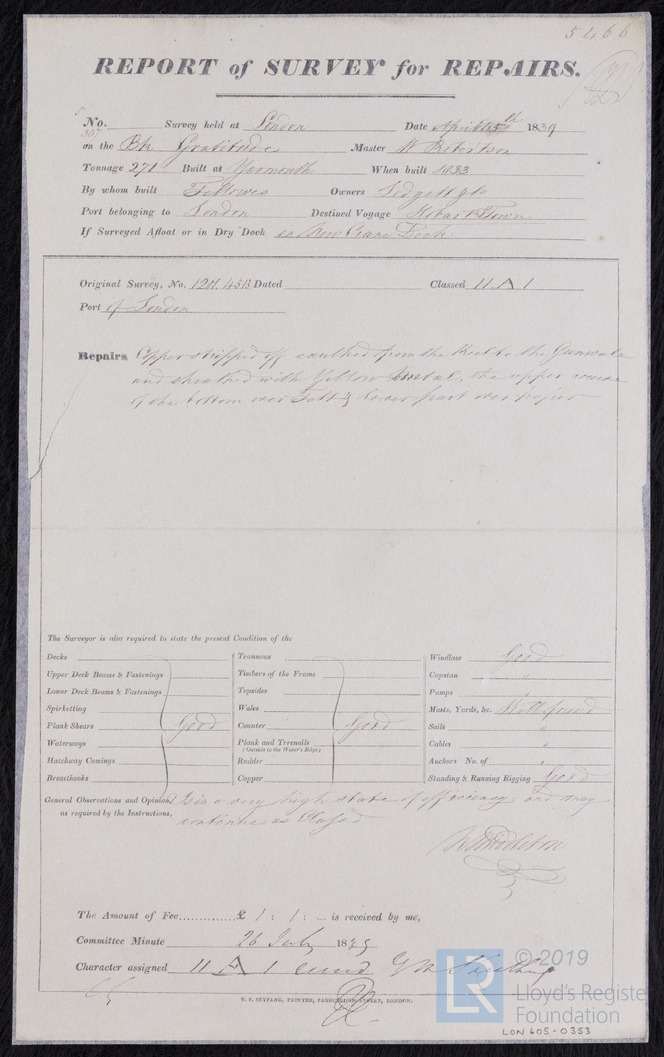 5466
REPORT of SURVEY for REPAIRS.
No. 357 Survey held at London Date April 1839
on the Bk Gratitude Master W Robertson
Tonnage 271 Built at Yarmouth When built 1833
By whom built Fellowes Owners Ledgett & Co
Port belonging to London Destined Voyage Hobart Town
If Surveyed Afloat or in Dry Dock in New Crane Dock
Original Survey, No. 1201. 4513 Dated Classed 11 A 1
Port of London
Repairs Copper stripped off caulked from the Keel to the Gunwale
and sheathed with Yellow Metal, the upper course
of the bottom over Felt & lower part over paper
The Surveyor is also required to state the present Condition of the
Decks
Upper Deck Beams & Fastenings
Lower Deck Beams & Fastenings
Spirketting
Plank Shears Good
Waterways
Hatchway Comings
Breasthooks
Transoms
Timbers of the Frame
Topsides
Wales
Counter Good
Plank and Treenails
(Outside to the Water's Edge)
Rudder
Copper
Windlass Good
Capstan "
Pumps "
Masts, Yards, &c. Well found
Sails "
Cables "
Anchors No. of "
Standing & Running Rigging Good
General Observations and Opinions Is in a very high state of efficiency and may
as required by the Instructions, continue as Classed
W Middleton
The Amount of Fee.............. £ 1 : 1 : – is received by me,
Committee Minute 26 July 1839
Character assigned 11 A 1
C. F. SEYFANG, PRINTER, FARRINGDON STREET, LONDON.
LR
©2019
Lloyd's Registe
Foundation
LON 605-0353